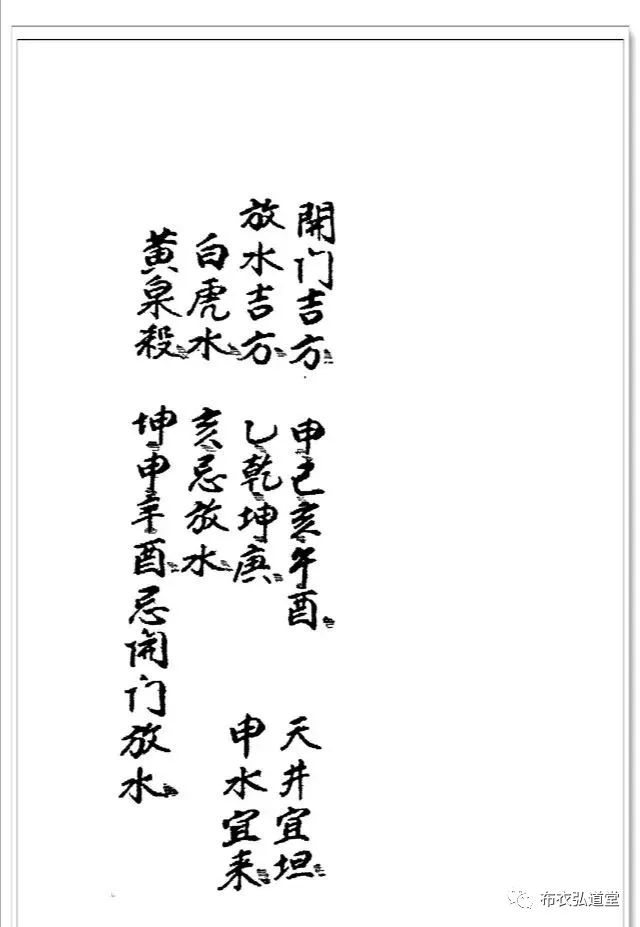 開门吉方 申巳亥午酉 天井宜坦
放水吉方 乙乾坤庚 申水宜来
白虎水 亥忌放水
黄泉殺 坤申辛酉忌開门放水
布衣弘道堂